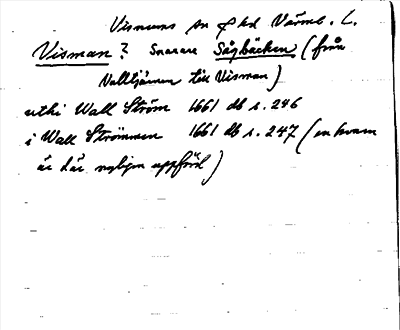 Visnums sn & hd Värml. L.
Visman? Snarare Sågbäcken (från
Valltjärnen till Visman)
uthi Wall Ström 1661 db s. 246
i Wall Strömmen 1661 db s. 247 (en kvarn
är där nyligen uppförd)